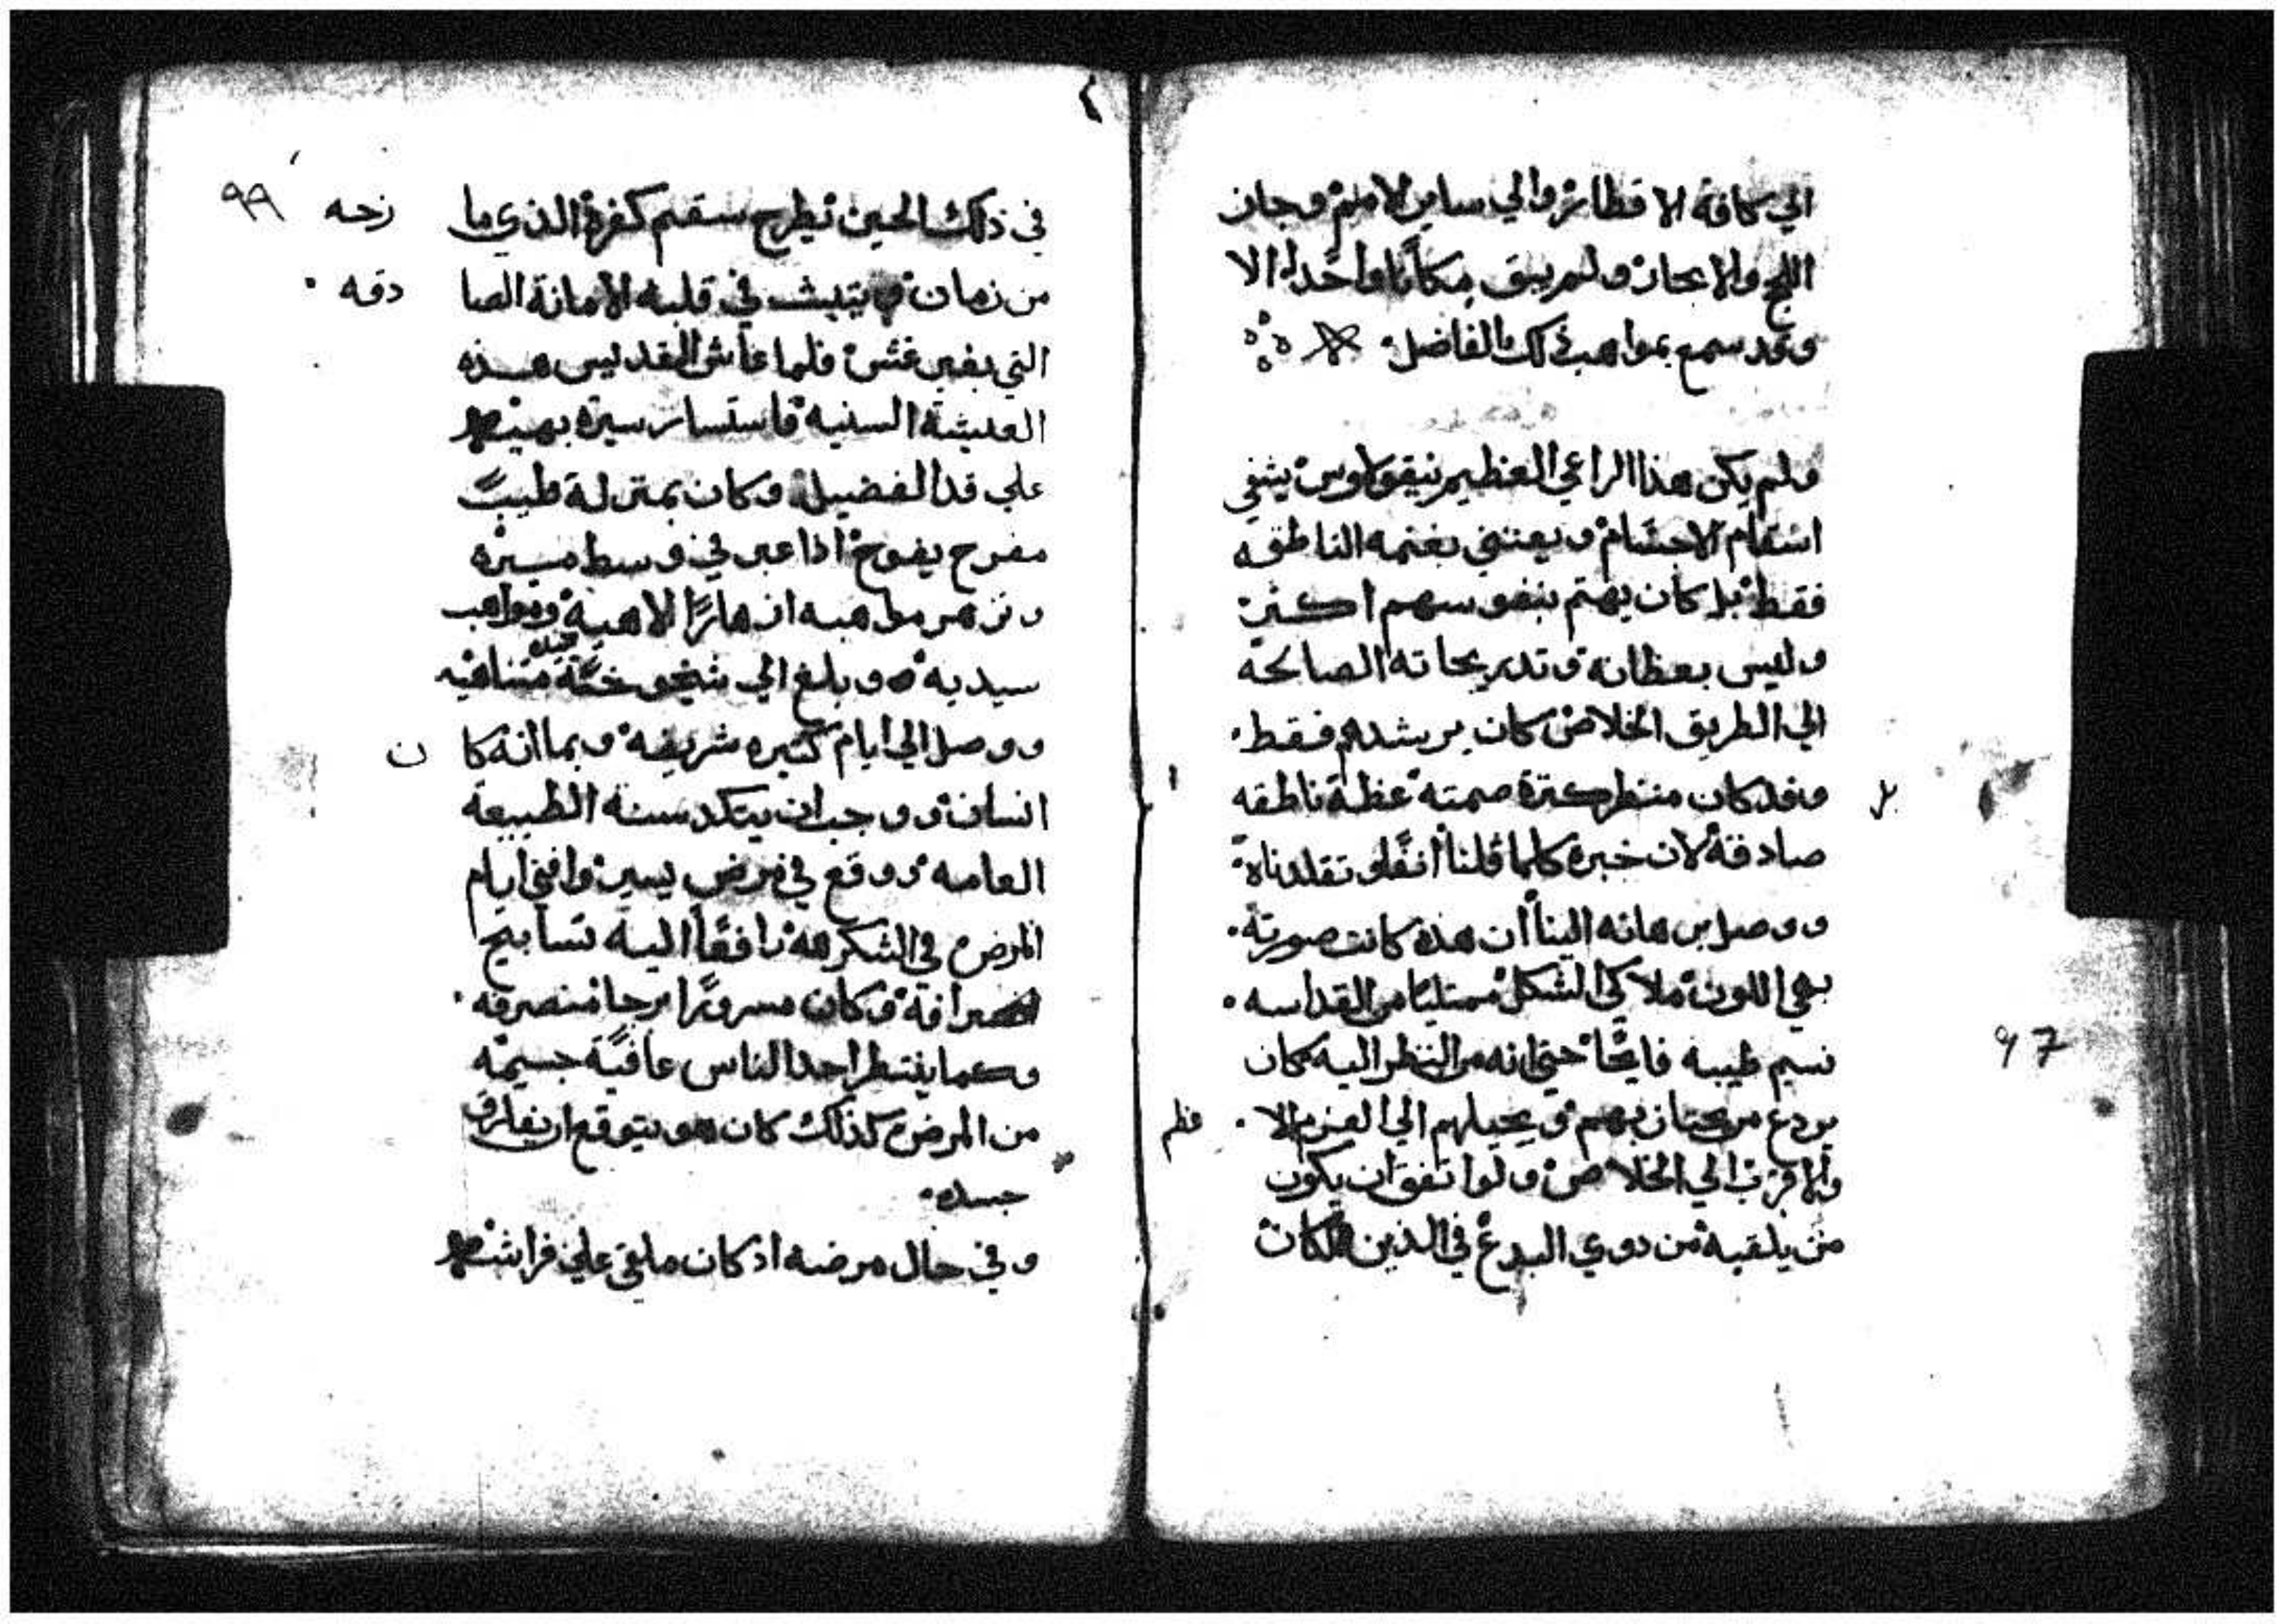 الي كافة الاقطار والي ساير الامم وجاز
اللج والابحار ولم يبق مكانا واحدا الا
وقد سمع بمواهب ذلك الفاضل
ولم يكن هذا الراعي العظيم نيقولاوس يشفي
اسقام الاجسام ويعتني بغنمه الناطقه
فقط بل كان يهتم بنفوسهم اكثر
وليس بعظاته وتدريجاته الصالحة
الي الطريق الخلاص كان يرشدهم فقط
وقد كان منظر كثرة صمته عظة ناطقه
صادقة لان خبره كلما قلنا انفا وتقلدناه
ووصل برهانه الينا ان هذه كانت صورته
بهي اللون ملاكي الشكل ممتليا من القداسه
نسيم طيبه فايحا حتي انه من النظر اليه كان
97
يردع من يجتاز بهم ويحيلهم الي العزم الا فظم
والاقرب الي الخلاص ولو اتفق ان يكون
من يلقيه من دوي البدع في الدين كان
99
في ذلك الحين يطرح سقم كفره الذي ما زحه
من زمان ويتبث في قلبه الامانة الصا دقه
التي بغير غش فلما عاش القديس هذه
العيشة السنية فاستسار سيرة بهية
علي قد الفضيله وكان بمنزلة طيب
مفرح يفوح اذا عبر في وسط مسيره
وتزهر مواهبه ازهارا الاهية ومواهب
سيديه وبلغ الي شيخوخة متناهيه
ووصل الي ايام كثيره شريفه وبما انه كا ن
انسان ووجب ان يتكد سنة الطبيعة
العامه ووقع في مرض يسير وافني ايام
المرض في الشكر لله رافعا اليه تسابيح
انصرافة وكان مسرورا برجا منصرفه
وكما ينتظر احد الناس عافية جسيمه
من المرض كذلك كان هو يتوقع ان يفارق
جسده
وفي حال مرضه اذ كان ملقي علي فراشه